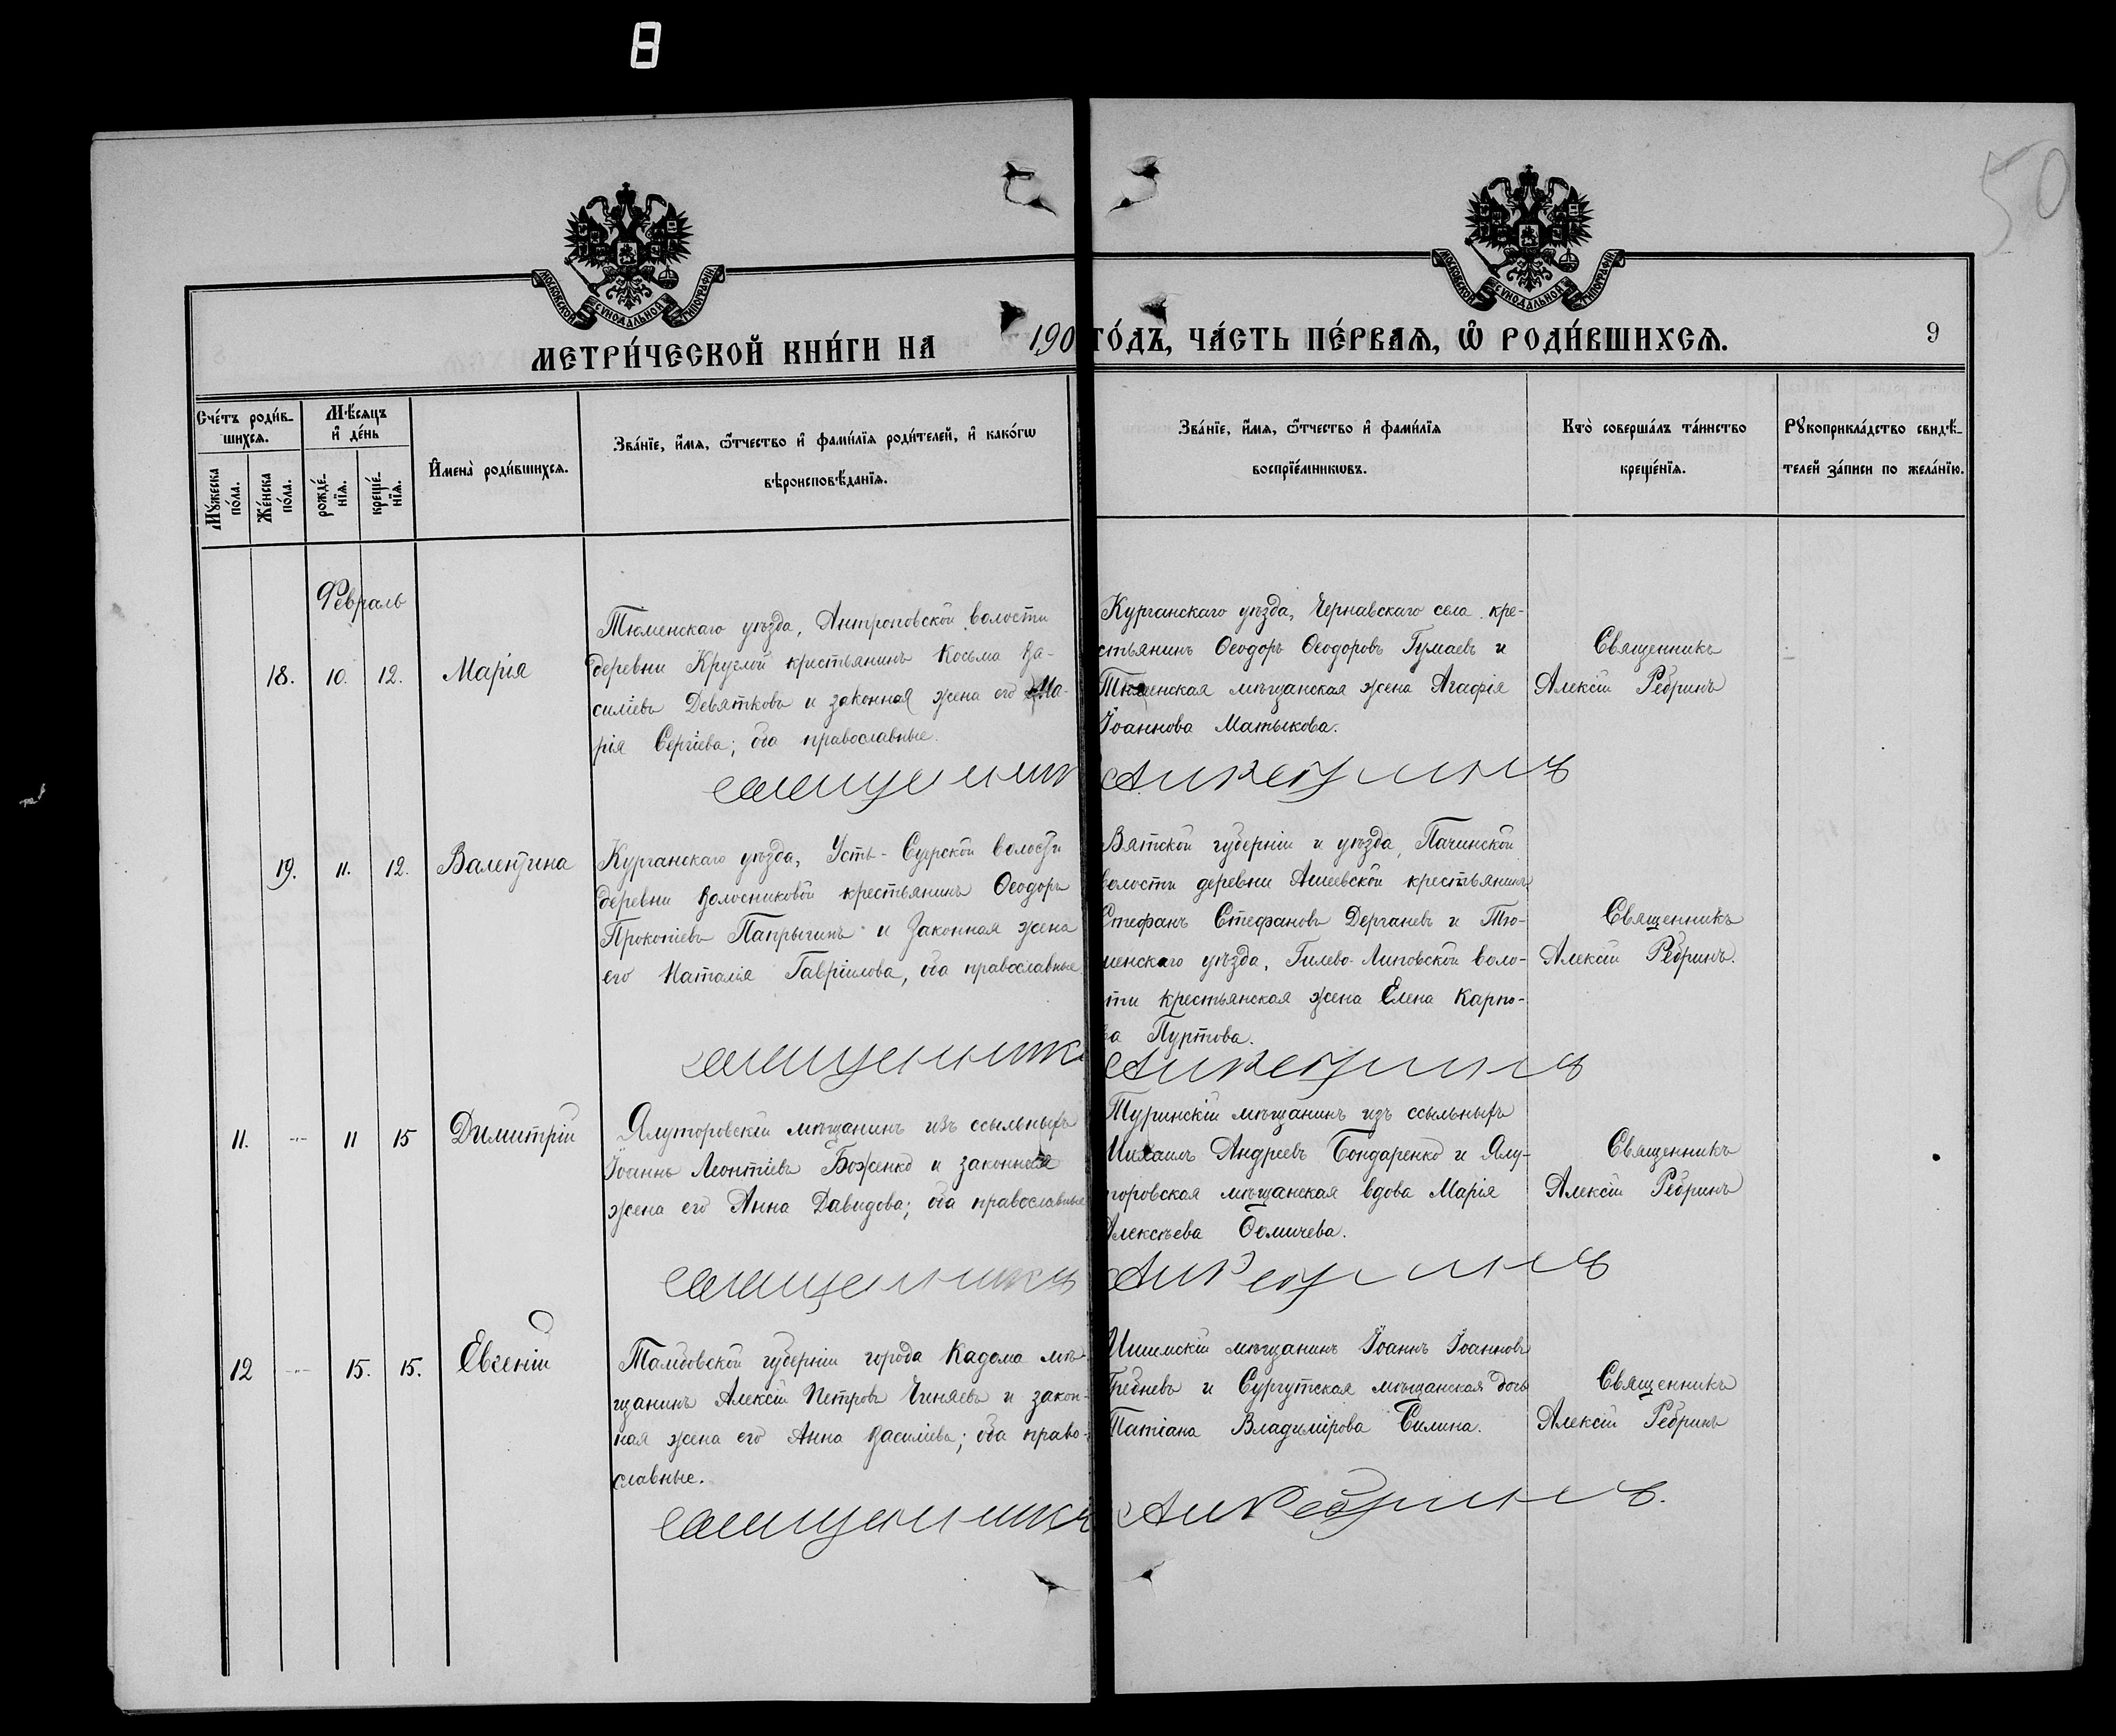 8
50
МОСКОВСКОЙ СѴНОДАЛЬНОЙ ТИПОГРАФІИ
МОСКОВСКОЙ СѴНОДАЛЬНОЙ ТИПОГРАФІИ
МЕТРИ́ЧЕСКОЙ КНИ́ГИ НА 190
ГО́ДЪ, ЧА́СТЬ ПЕ́РВАѦ, Ѡ҆ РОДИ́ВШИХСѦ.
9
Сче́тъ роди́в-
шихсѧ.
Мꙋ́жеска по́ла.
Же́нска по́ла.
Мѣ́сѧцъ
и҆ де́нь
рожде́-
нїѧ.
креще́-
нїѧ.
И҆мена̀ роди́вшихсѧ.
Зва́нїе, и҆́мѧ, ѻ҆́тчество и҆ фами́лїѧ роди́телей, и҆ како́гѡ
вѣроисповѣ́данїѧ.
Зва́нїе, и҆́мѧ, ѻ҆́тчество и҆ фами́лїѧ
воспрїе́мникѡвъ.
Кто̀ соверша́лъ та́инство
креще́нїѧ.
Рꙋкоприкла́дство свидѣ́-
телей за́писи по жела́нїю.
Февраль
18. 10. 12. Марія
Тюменскаго уѣзда, Антроповской волости
деревни Круглой крестьянинъ Косьма Ва-
силіевъ Девятковъ и законная жена его Ма-
рія Сергіева; оба православные.
Курганскаго уѣзда, Чернавскаго села кре-
стьянинъ Ѳеодоръ Ѳеодоровъ Гумаевъ и
Тюменская мѣщанская жена Агафія
Іоаннова Матыкова.
Священникъ
Алексій Ребринъ
Священник
А Ребринъ
19. 11. 12. Валентина
Курганскаго уѣзда, Усть-Суерской волости
деревни Волосниковой крестьянинъ Ѳеодоръ
Прокопіевъ Папрыгинъ и законная жена
его Наталія Гавріилова, оба православные
Вятской губерніи и уѣзда, Пачинской
волости деревни крестьянинъ
Стефанъ Стефановъ Дерганевъ и Тю-
менскаго уѣзда, Гилево-Липовской воло-
сти крестьянская жена Елена Карпо-
ва Пуртова.
Священникъ
Алексій Ребринъ.
Священникъ
А Ребринъ
11. 11 15 Димитрій
Ялуторовскій мѣщанинъ изъ ссыльныхъ
Іоаннъ Леонтіевъ Боженко и законная
жена его Анна Давидова; оба православные
Туринскій мѣщанинъ изъ ссыльныхъ
Михаилъ Андреевъ Бондаренко и Ялу-
торовская мѣщанская вдова Марія
Алексѣева
Священникъ
Алексій Ребринъ
Священникъ
А Ребринъ
12 15. 15. Евгеній
Тамбовской губерніи города Кадома мѣ-
щанинъ Алексій Петровъ Чиняевъ и закон-
ная жена его Анна Василіева; оба право-
славные.
Ишимскій мѣщанинъ Іоаннъ Іоанновъ
Гребневъ и Сургутская мѣщанская дочь
Татіана Владимірова Силина.
Священникъ
Алексій Ребринъ
Священникъ
А Ребринъ.